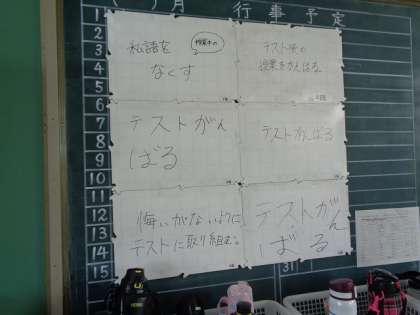 月 行事予定
1
2
3
4
5
6
7
8
9
10
11
12
13
14
15
31
私語を
授業中の
なくす
テスト後の
授業をがんばる
テストがん
ばる
テストがんばる
悔いがないように
テストに取り組む。
テストがん
ばる